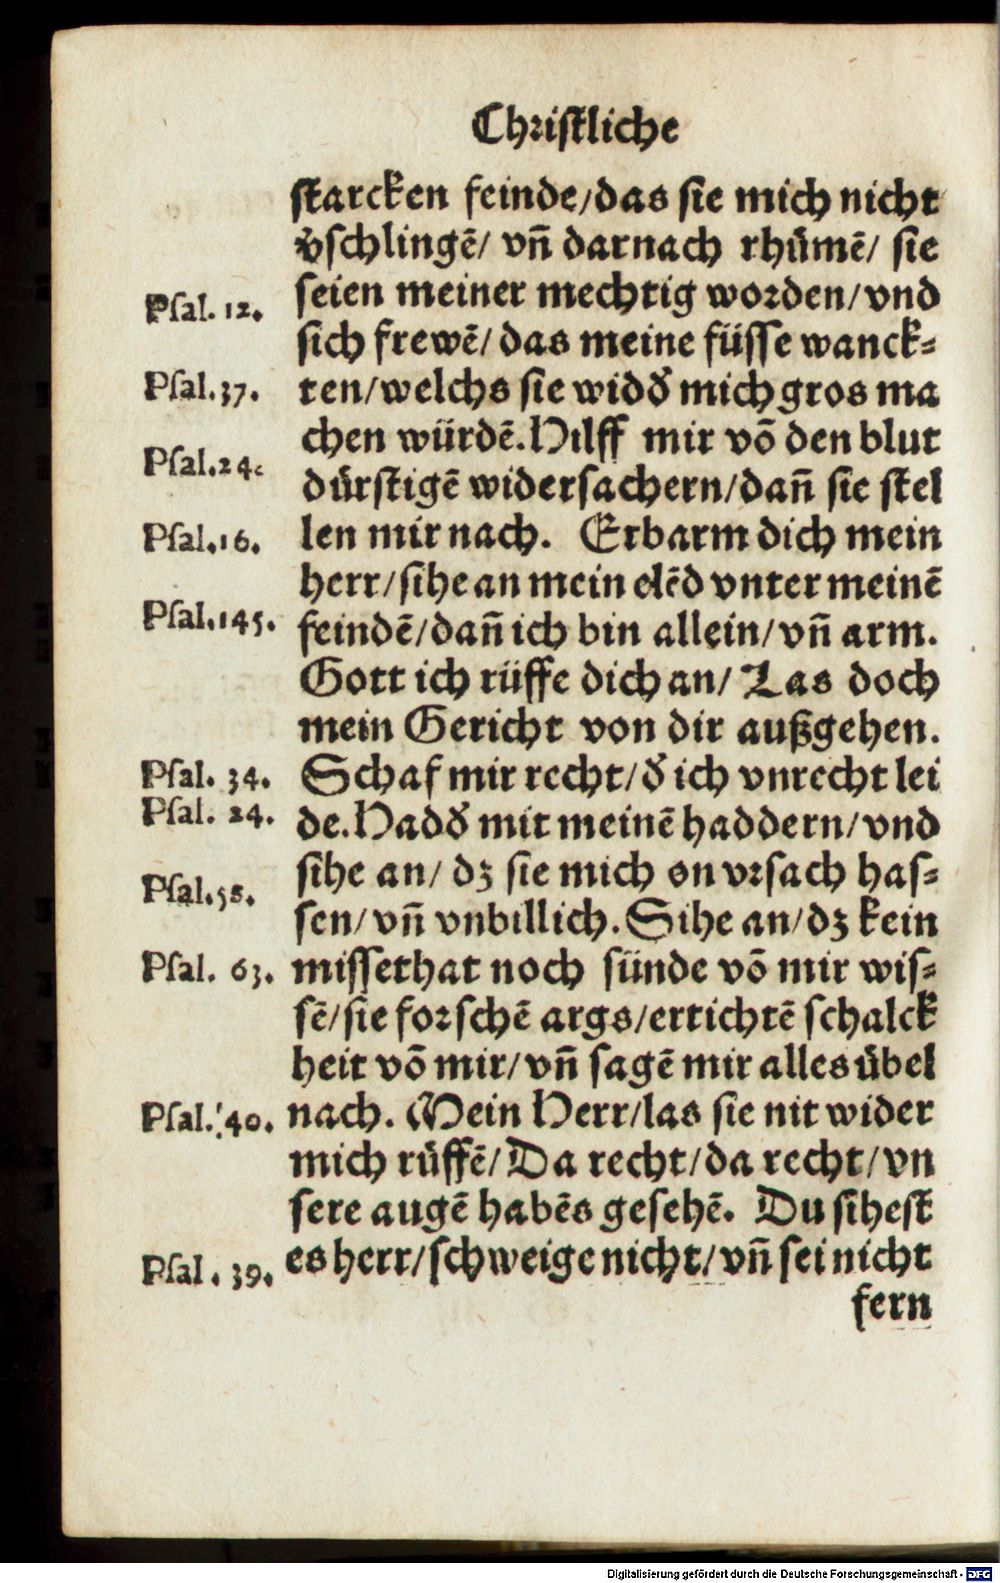 Christliche
starcken feinde/das sie mich nicht
v̄schlingē/ vn̄ darnach rhümē/ sie
seien meiner mechtig worden/vnd
Psal. 12.
sich frewē/das meine füsse wanck=
Psal.37. ten/welchs sie widď mich gros ma
chen würdē.Hilff mir vō den blut
Psal.24.
dürstigē widersachern/dan̄ sie stel
Psal.16. len mir nach. Erbarm dich mein
herr/sihe an mein elēd vnter meinē
Psal.145. feindē/dan̄ ich bin allein/vn̄ arm.
Gott ich rüffe dich an/ Las doch
mein Gericht von dir außgehen.
Psal. 34. Schaf mir recht/ď ich vnrecht lei
Psal. 24. de.Hadď mit meinē haddern/vnd
sihe an/ dz sie mich on vrsach has=
Psal.58.
sen/vn̄ vnbillich.Sihe an/dz kein
Psal. 63. missethat noch sünde vō mir wis=
sē/sie forschē args/ertichtē schalck
heit vō mir/vn̄ sagē mir alles übel
Psal. 40. nach. Mein Herr/las sie nit wider
mich rüffē/Da recht/da recht/vn
sere augē habēs gesehē. Du sihest
Psal. 39. es herr/schweige nicht/vn̄ sei nicht
fern
Digitalisierung gefördert durch die Deutsche Forschungsgemeinschaft - DFG